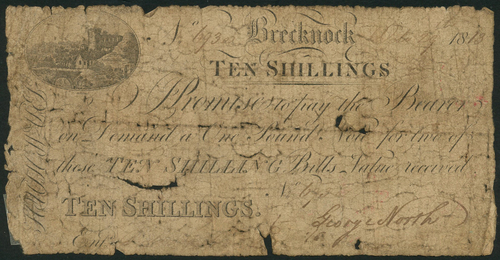 No Brecknock 1813
TEN SHILLINGS
I Promise to pay the Bearer
on Demand a One Pound Note for two of
these TEN SHILLING Bills Value received
No
TEN SHILLINGS.
George North
Ent